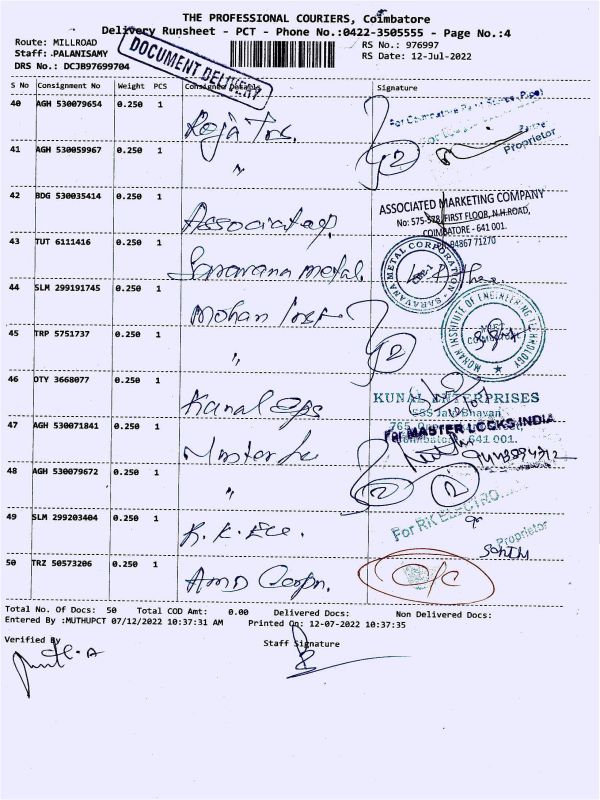 THE PROFESSIONAL COURIERS, Coimbatore
Delivery Runsheet - PCT - Phone No.:0422-3505555 - Page No.:4
Route: MILLROAD
Staff: PALANISAMY
DRS No.: DCJB97699704
DOCUMENT DELIVERY
RS No.: 976997
RS Date: 12-Jul-2022
S No Consignment No Weight PCS Consignee Details Signature
40 AGH 530079654 0.250 1 Roja Ins.
For Coimbatore
Proprietor
41 AGH 530059967 0.250 1 "
42 BDG 530035414 0.250 1
ASSOCIATED MARKETING COMPANY
No: 575-578, FIRST FLOOR, N.H.ROAD,
COIMBATORE - 641 001.
94867 71270
43 TUT 6111416 0.250 1 Saravana metal.
SARAVANA METAL CORPORATION
44 SLM 299191745 0.250 1 Mohan Inst
MOHAN INSTITUTE OF ENGINEERING TECHNOLOGY
45 TRP 5751737 0.250 1 "
46 OTY 3668077 0.250 1 Kunal Eps
KUNAL ENTERPRISES
SSS Jain Bhavan
765,
Coimbatore - 641 001.
47 AGH 530071841 0.250 1 Master
For MASTER LOCKS INDIA
48 AGH 530079672 0.250 1 "
49 SLM 299203404 0.250 1 R.K. Ele.
For RK ELECTRO
Proprietor
50 TRZ 50573206 0.250 1 AMD Corpn.
O/C
Total No. Of Docs: 50 Total COD Amt: 0.00 Delivered Docs: Non Delivered Docs:
Entered By :MUTHUPCT 07/12/2022 10:37:31 AM Printed On: 12-07-2022 10:37:35
Verified By Staff Signature